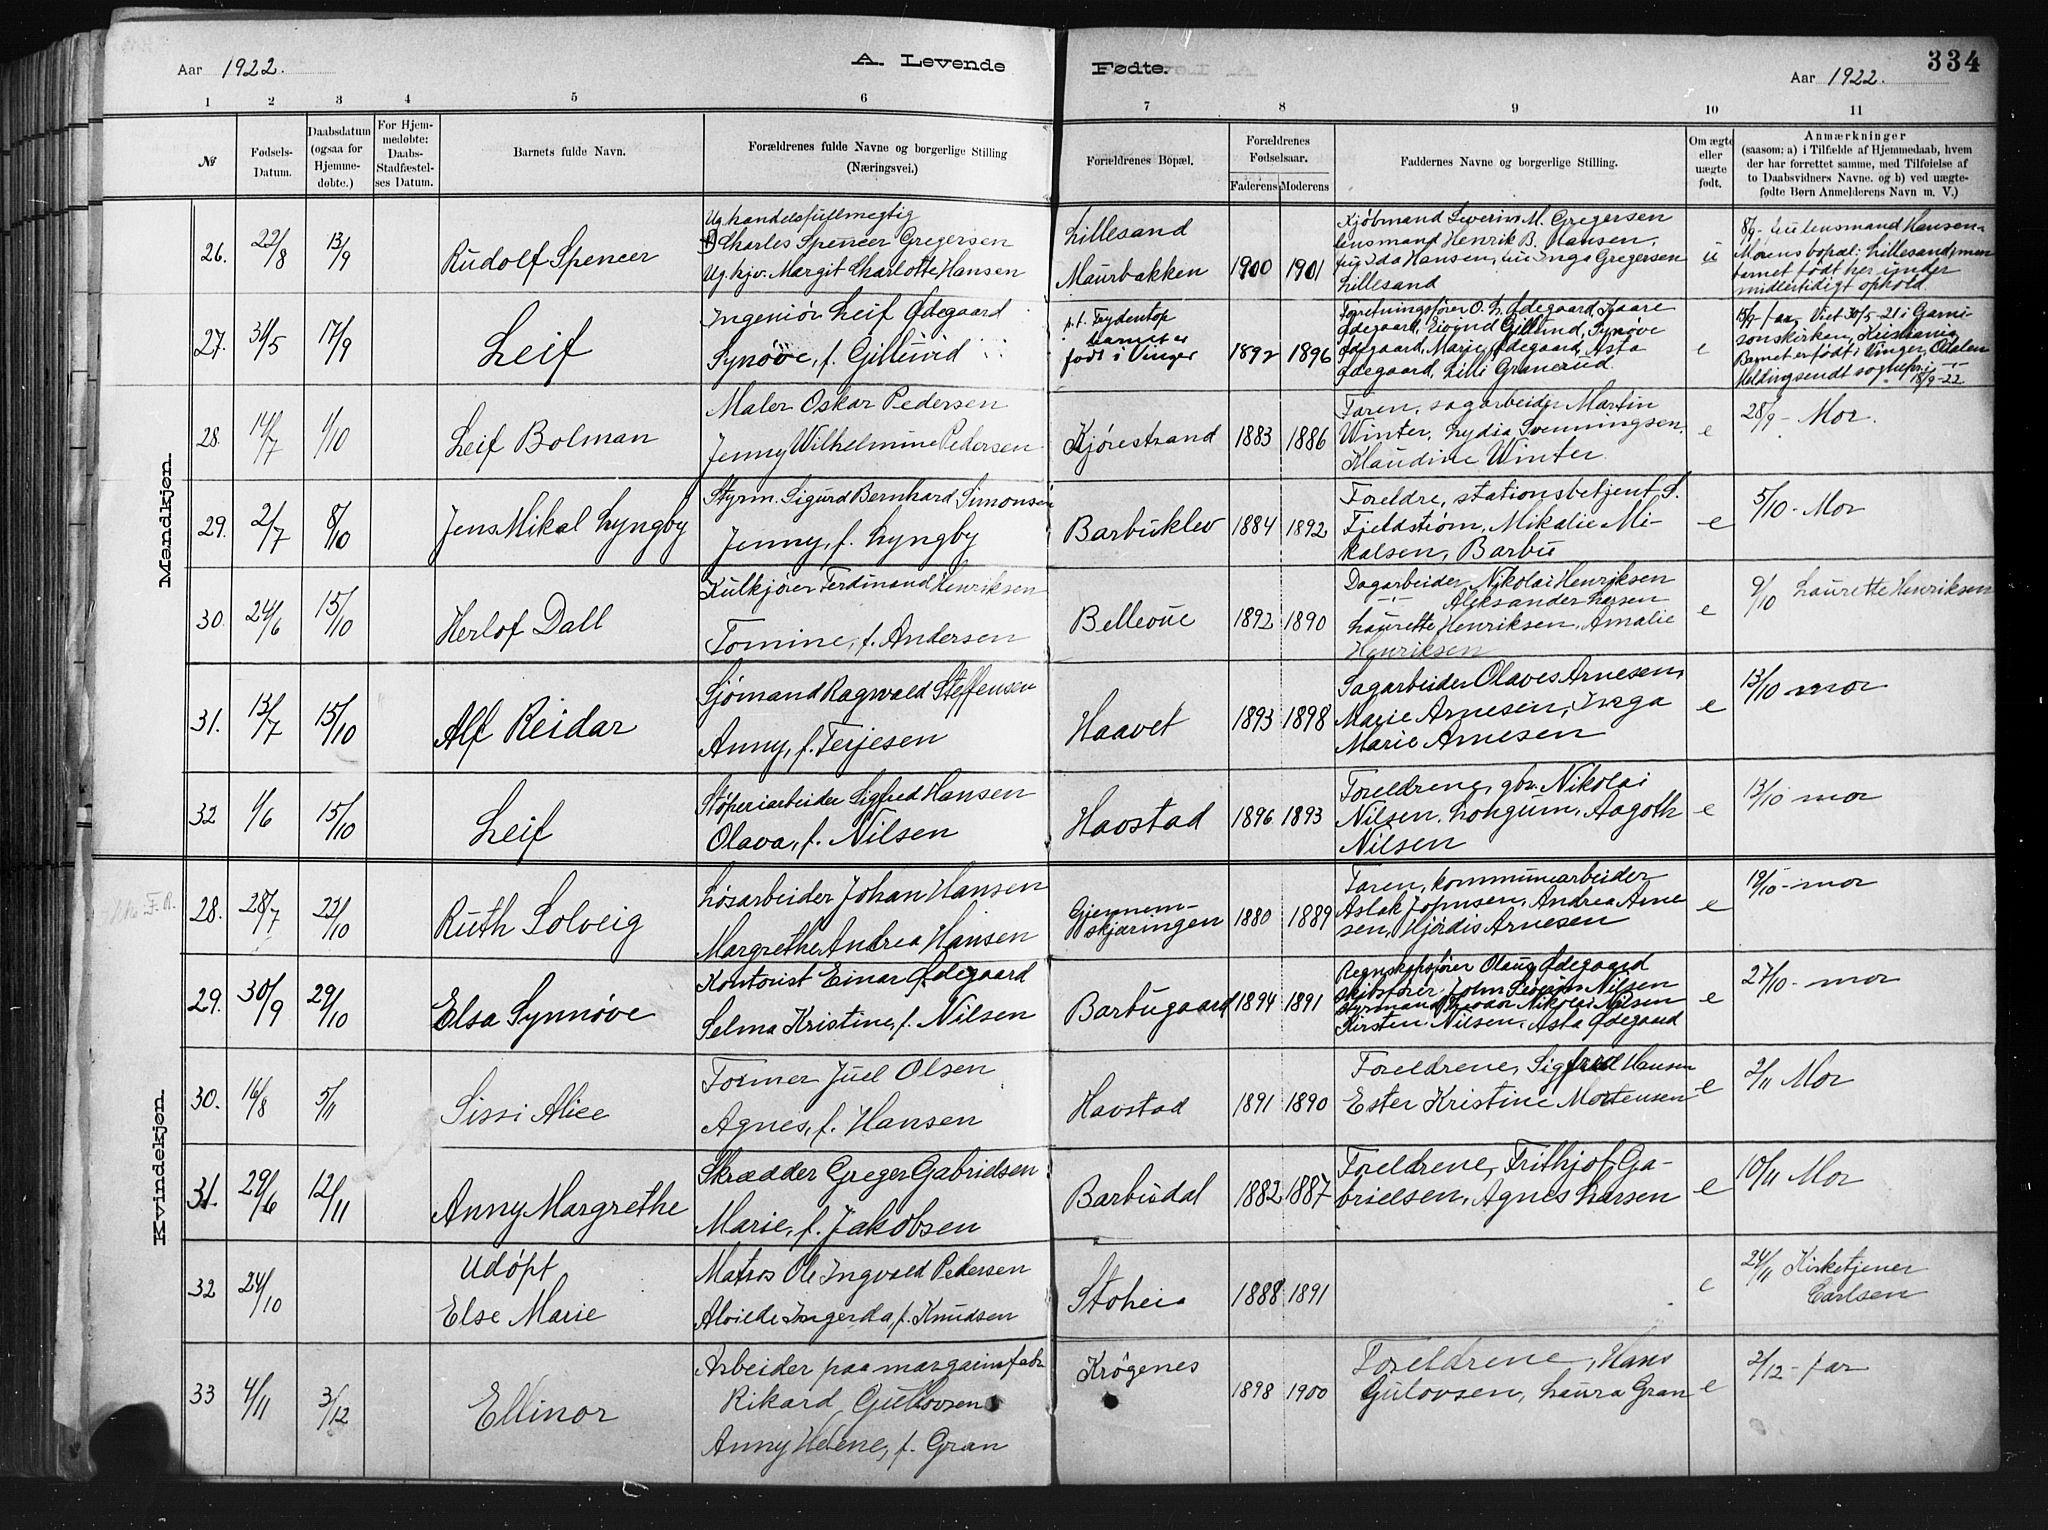 334
Aar 1922. A. Levende Fødte. Aar 1922.
1 2 3 4 5 6 7 8 9 10 11
№
Fødsels-
Datum.
Daabsdatum
(ogsaa for
Hjemme-
døbte.)
For Hjem-
medøbte:
Daabs-
Stadfæstel-
ses Datum.
Barnets fulde Navn.
Forældrenes fulde Navne og borgerlige Stilling
(Næringsvei.)
Forældrenes Bopæl.
Forældrenes
Fødselsaar.
Faderens Moderens
Faddernes Navne og borgerlige Stilling.
Om ægte
eller
uægte
født.
Anmærkninger
(saasom: a) i Tilfælde af Hjemmedaab, hvem
der har forrettet samme, med Tilføielse af
to Daabsvidners Navne. og b) ved uægte-
fødte Børn Anmelderens Navn m. V.)
Mandkjøn.
26. 22/8 13/9 Rudolf Spencer
Ug. handelsfullmegtig
Charles Spencer Gregersen
Ug. hjv. Margit Charlotte Hansen
Lillesand
Maurbakken
1900 1901
Kjøbmand Severin M. Gregersen
lensmand Henrik B. Hansen,
fru Ida Hansen, fru Inga Gregersen
Lillesand
u
8/9 - fru lensmand Hansen.
Morens bopæl: Lillesand, men
barnet født her under
midlertidigt ophold.
27. 31/5 17/9 Leif
Ingeniør Leif Ødegaard
Synøve, f. Gillund
p.t. Frydentop
Barnet er
født i Vinger
1892 1896
Foretningsfører O. L. Ødegaard, Kaare
Ødegaard, Eivind Gillund, Synøve
Ødegaard, Marie Ødegaard, Asta
Ødegaard, Lilli Granerud.
e
15/9 - far. Viet 30/5-21 i Garni
sonskirken, Kristiania
Barnet er født i Vinger, Odalen
Melding sendt sognepr. 18/9-22
28. 14/7 1/10 Leif Bolman
Maler Oskar Pedersen
Jenny Wilhelmine Pedersen
Kjørestrand
1883 1886
Faren, sagarbeider Martin
Winter, Lydia Svenningsen,
Klaudine Winter.
e
28/9 - Mor.
29. 2/7 8/10 Jens Mikal Lyngby
Styrm. Sigurd Bernhard Simonsen
Jenny, f. Lyngby
Barbuklev
1884 1892
Foreldre, stationsbetjent S.
Fjeldstrøm, Mikalie Mi-
kalsen, Barbu
e
5/10 - Mor
30. 24/6 15/10 Herlof Dall
Kulkjører Ferdinand Henriksen
Tomine, f. Andersen
Bellevue
1892 1890
Dagarbeider Nikolai Henriksen
Aleksander Larsen
Laurette Henriksen, Amalie
Henriksen
e
9/10 Laurette Henriksen
31. 13/7 15/10 Alf Reidar
Sjømand Ragwald Steffensen
Anny, f. Terjesen
Haavet
1893 1898
Sagarbeider Olaves Arnesen,
Marie Arnesen, Inga
Marie Arnesen
e
13/10 mor
32 1/6 15/10 Leif
Støperiarbeider Sigfred Hansen
Olava, f. Nilsen
Havstad
1896 1893
Foreldrene, gbr. Nikolai
Nilsen, Longum, Aagoth
Nilsen
e
13/10 mor
Kvindekjøn.
28. 28/7 22/10 Ruth Solveig
Løsarbeider Johan Hansen
Margrethe Andrea Hansen
Gjennem-
skjæringen
1880 1889
Faren, kommunearbeider
Aslak Johnsen, Andrea Arne
sen, Hjørdis Arnesen
e
19/10 - mor
29. 30/9 29/10 Elsa Synnøve
Kontorist Einar Ødegaard
Selma Kristine, f. Nilsen
Barbugaard
1894 1891
Regnskapsfører Olaug Ødegaard
skibsfører John Severin Nilsen
Styrmand Nikolai Nilsen
Kirsten Nilsen, Asta Ødegaard
e
27/10 - mor
30. 16/8 5/11 Sissi Alice
Former Juel Olsen
Agnes, f. Hansen
Havstad
1891 1890
Foreldrene, Sigfred Hansen
Ester Kristine Mortensen
e
2/11 Mor
31. 29/6 12/11 Anny Margrethe
Skrædder Greger Gabrielsen
Marie, f. Jakobsen
Barbudal
1882 1887
Foreldrene, Frithjof Ga-
brielsen, Agnes Larsen
e
10/11 Mor
32 24/10
Udøpt
Else Marie
Matros Ole Ingvald Pedersen
Alvilde Ingerda, f. Knudsen
Stoheia
1888 1891
e
24/11 Kirketjener
Carlsen
33 4/11 3/12 Ellinor
Arbeider paa margarinfabr.
Rikard Gulovsen
Anny Helene, f. Gran
Krøgenes
1898 1900
Foreldrene, Hans
Gulovsen, Laura Gran
e
2/12 - far